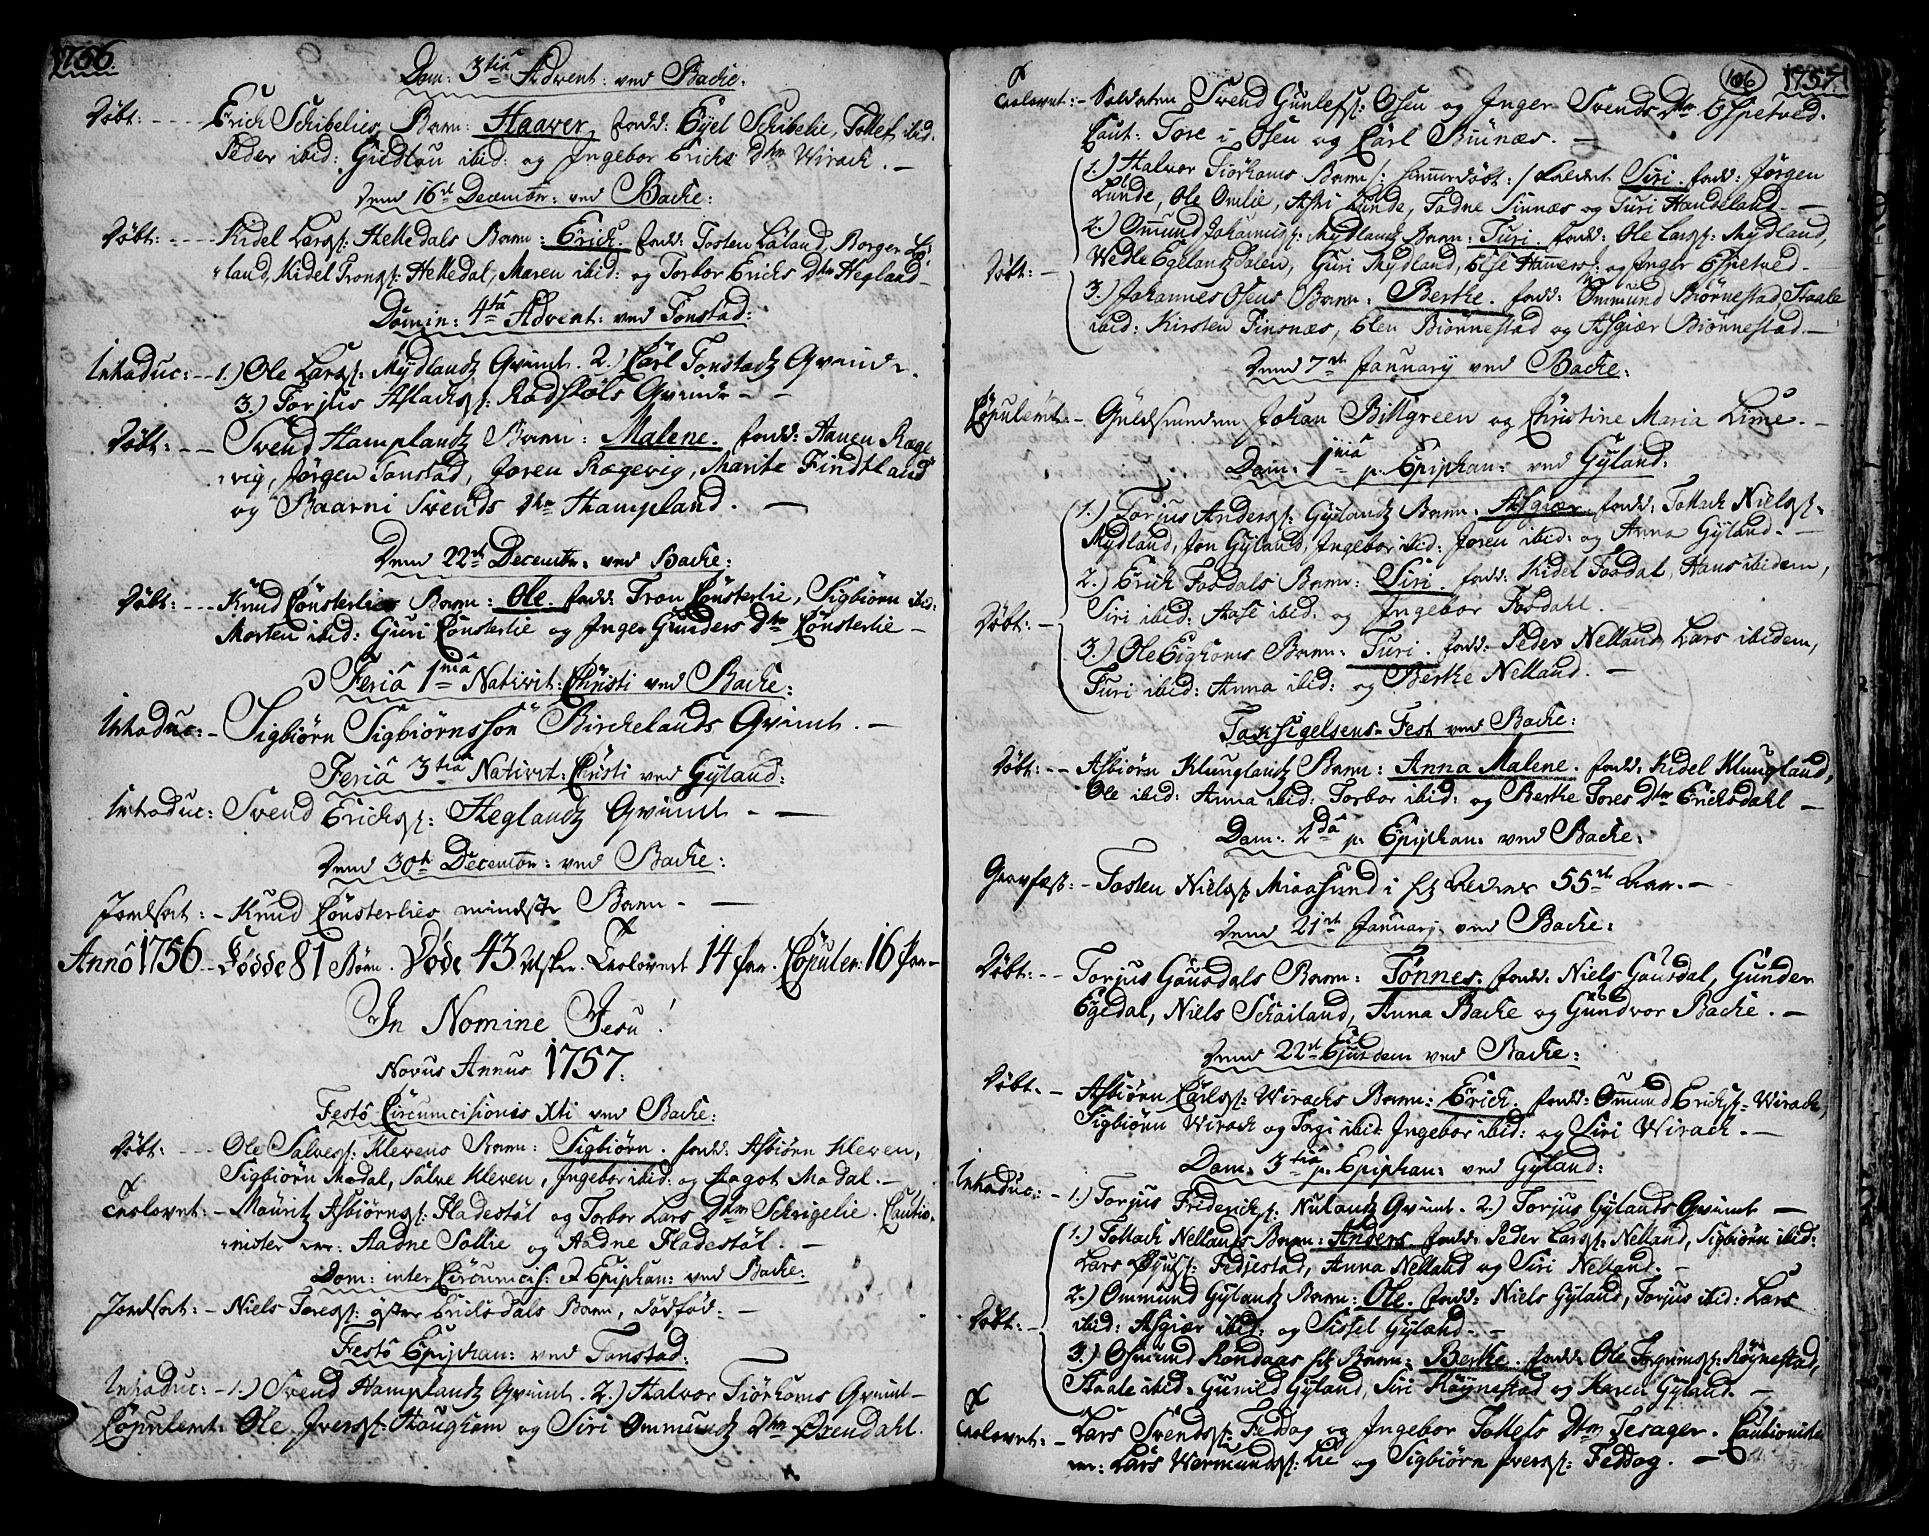 1756.
Dom: 3tia Advent: ved Backe.
Döbt: Erich Schibelies Barn: Haaver. fadd: Eyel Schibelie, Tollef ibid.
Peder ibid: Gudlau ibid: og Ingebor Erichs Dtr Wirack. —
Dend 16de Decembr: ved Backe:
Döbt: Kidel Larss: Helledals Barn: Erich. fadd: Tosten Låland, Borger Lå-
land, Kidel Tronss: Helledal, Maren ibid: og Torbor Erichs Dtr Hegland —
Domin: 4ta Advent: ved Tonstad:
Introduc: 1.) Ole Larss: Mydlands Qvinde. 2.) Carl Tonstads Qvinde.
3.) Torjus Aslachss: Rødstöls Qvinde —
Döbt: Svend Hamplands Barn: Malene. fadd: Hauen Rage-
vig, Jørgen Tonstad, Joren Ragevig, Marite Findtland
og Baarni Svends Dtr Hampland. —
Dend 22de Decembr: ved Backe:
Döbt: Knud Cönsterlies Barn: Ole. fadd: Tron Cönsterlie, Sigbiörn ibid:
Morten ibid: Guri Cönsterlie og Inger Gunders Dtr Cönsterlie —
Feria 1ma Nativit: Christi ved Backe:
Introduc: Sigbiörn Sigbiörnssön Birckelands Qvinde. —
Feria 3tia Nativit: Christi ved Gyland:
Introduc: Svend Erichss: Heglands Qvinde —
Dend 30te Decembr: ved Backe:
Jordfæst: Knud Cönsterlies mindste Barn. —
Anno 1756 Födde 81 Börn. Döde 43 Msker. Trolovet 14 Par. Copuler: 16 Par —
In Nomine Jesu!
Novus Annus 1757.
Festo Circumcisionis Xti ved Backe:
Döbt: Ole Salvess: Klevens Barn: Sigbiörn. fadd: Asbiörn Kleven,
Sigbiörn Modal, Salve Kleven, Ingebor ibid: og Aagot Modal. —
Trolovet: Mauritz Asbiörnss: Fladestöl og Torbor Lars Dtr Schrigelie. Cautio-
nister er: Aadne Sollie og Aadne Fladestöl. —
Dom: inter Circumcis: et Epiphan: ved Backe:
Jordfæst: Niels Toress: öster Erichsdals Barn, dödfød. —
Festo Epiphan: ved Tonstad:
Introduc: 1.) Svend Hamplands Qvinde. 2.) Halvor Fiörhoms Qvinde —
Copuleret: Ole Iverss: Haughom og Siri Ommunds Dtr Ovendahl.
106 1757.
Trolovet: Soldaten Svend Gunlefss: Osen og Inger Svends Dtr Espetved.
Caut: Tore i Osen og Carl Buunæs. —
1.) Halvor Fiörhoms Barn /: hiemmedöbt :/ kaldet Siri. fadd: Jörgen
Lunde, Ole Omlie, Astri Lunde, Tadne Sinnæs og Turi Handeland. —
Döbt: 2.) Ommund Johannss: Mydlands Barn: Turi. fadd: Ole Larss: Mydland,
Wedle Egelandsdalen, Guri Mydland, Else Hauvers: og Inger Espetved —
3.) Johannes Osens Barn: Berthe. fadd: Ommund Biörnestad Staale
ibid: Kirsten Finsnæs, Elen Biönnestad og Asgiær Biönnestad. —
Dend 7de January ved Backe:
Copuleret: Guldsmeden Johan Billgreen og Christine Maria Lime. —
Dom: 1ma p. Epiphan: ved Gyland:
Döbt: 1.) Torjus Anderss: Gylands Barn: Asgiær. fadd: Tollack Nielss:
Mydland, Jon Gyland, Ingebor ibid: Joren ibid: og Anna Gyland. —
2.) Erich Fosdals Barn: Siri. fadd: Kidel Fosdal, Hans ibidem,
Siri ibid: Aase ibid: og Ingebor Fosdahl. —
3.) Ole Eighoms Barn: Turi. fadd: Peder Nelland, Lars ibidem,
Turi ibid: Anna ibid: og Berthe Nelland. —
Taksigelsens-Fest ved Backe:
Döbt: Asbiörn Klunglands Barn: Anna Malene. fadd: Kidel Klungland,
Ole ibid: Anna ibid: Torbor ibid: og Berthe Tores Dtr Erichsdahl —
Dom: 2da p. Epiphan: ved Backe:
Gravfæst: Tosten Nielss: Miaasund i sit Alders 55de Aar. —
Dend 21de Januarj ved Backe:
Döbt: Torjus Gausdals Barn: Tönnes. fadd: Niels Gausdal, Gunder
Egedal, Niels Schailand, Anna Backe og Gundvor Backe. —
Dend 22de Ejusdem ved Backe:
Döbt: Asbiörn Carlss: Wirachs Barn: Erich. fadd: Ommund Erichss: Wirack,
Sigbiörn Wirack og Torgi ibid: Ingebor ibid: og Siri Wirack. —
Dom: 3tia p. Epiphan: ved Gyland:
Introduc: 1.) Torjus Friderichss: Nulands Qvinde. 2.) Torjus Gylands Qvinde —
Döbt: 1.) Tollack Nellands Barn: Anders. fadd: Peder Larss: Nelland, Sigbiörn ibid:
Lars Fedjestad, Anna Nelland og Siri Nelland. —
2.) Ommund Gylands Barn: Ole. fadd: Niels Gyland, Torjus ibid: Lars
ibid: Asgiær ibid: og Sissel Gyland. —
3.) Osmund Röndaas sit Barn: Berthe. fadd: Ole Torgrimss: Röynestad,
Staale ibid: Gunild Gyland, Siri Röynestad og Karen Gyland. —
Trolovet: Lars Svendss: Feddog og Ingebor Tollefs Dtr Tesager. Cautionister
er: Lars Wermundss: Lie og Sigbiörn Iverss: Feddog. —